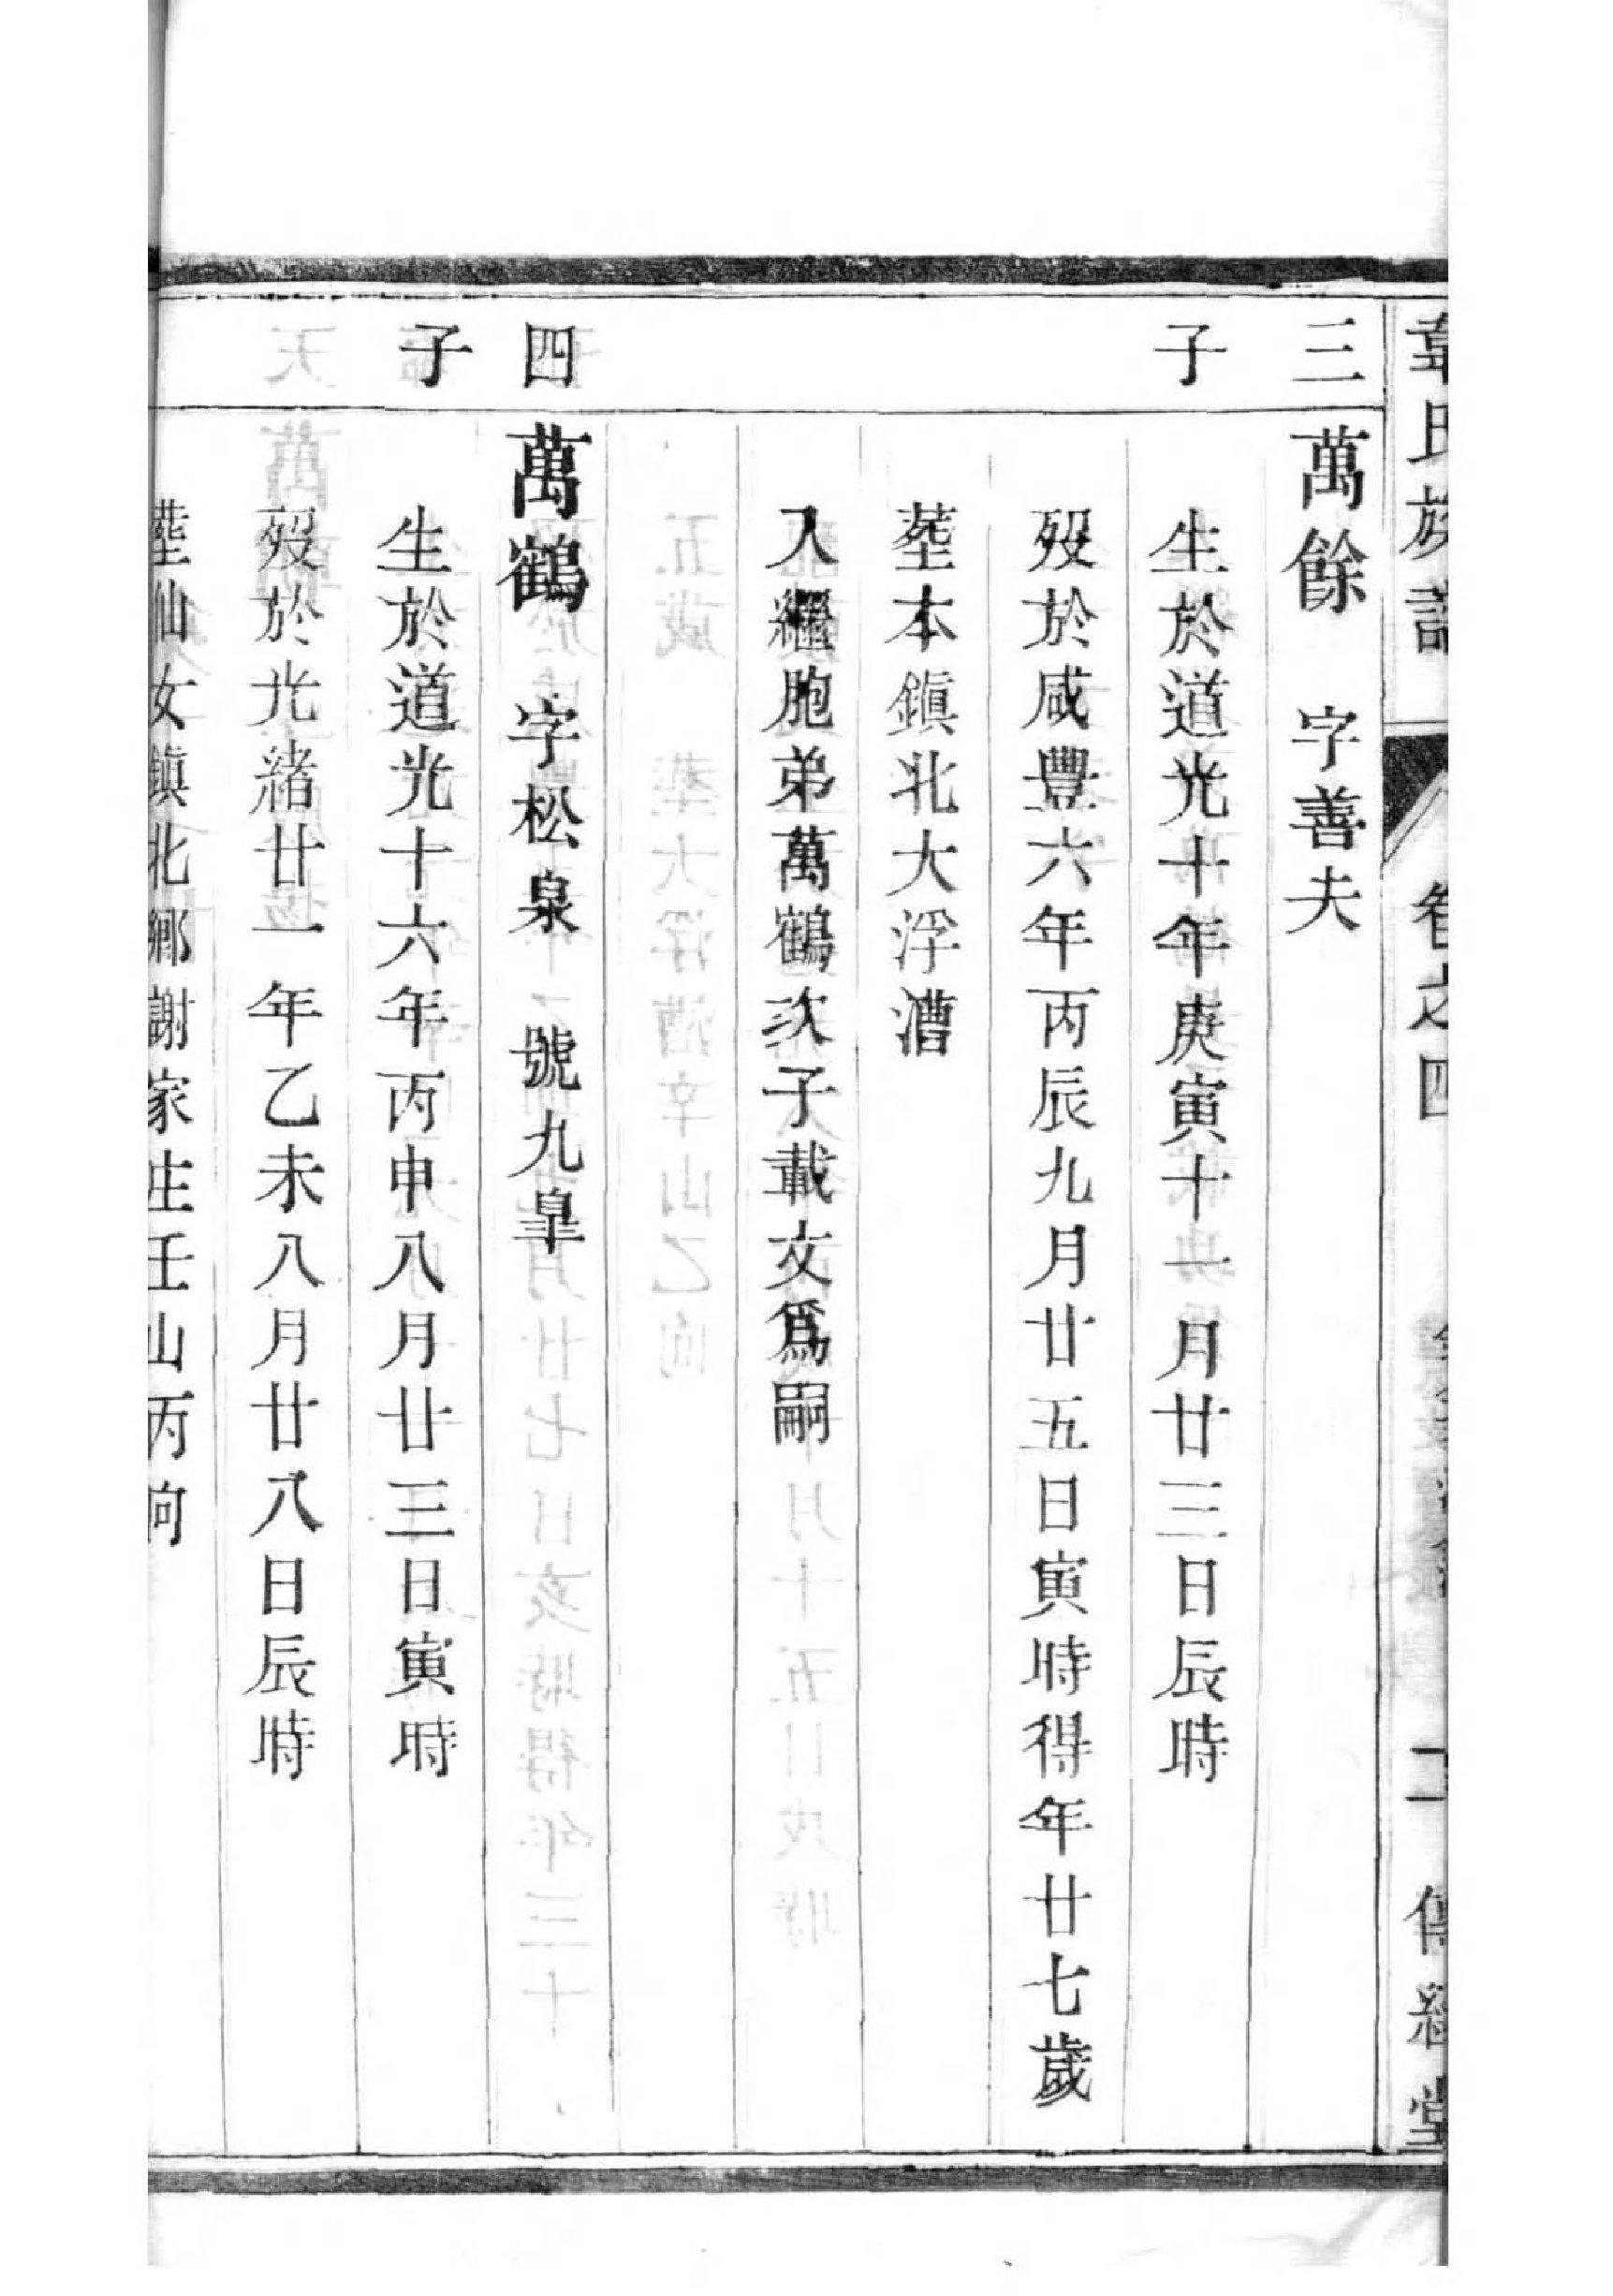 韋氏族譜 卷之四 傳經堂
三子
萬餘 字善夫
生於道光十年庚寅十一月廿三日辰時
歿於咸豐六年丙辰九月廿五日寅時得年廿七歲
塟本鎮北大浮漕
入繼胞弟萬鶴次子載文爲嗣
四子
萬鶴 字松泉 號九臯
生於道光十六年丙申八月廿三日寅時
歿於光緒廿一年乙未八月廿八日辰時
塟仙女鎮北鄉謝家庄壬山丙向